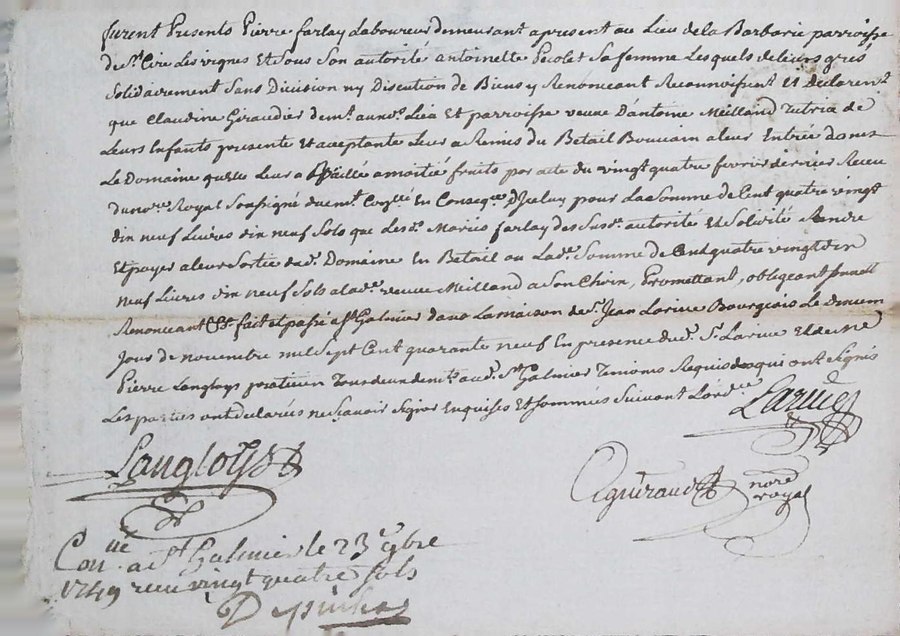 furent Presents Pierre farlay Laboureur demeurant apresent au Lieu de la Barbarie parroisse
de St. Cire Les vignes Et Sous Son autorité antoinette Secolet Sa femme Lesquels de leurs grés
Solidairement Sans Division ny Discution de Biens y Renoncant Reconnoissent Et Declarent
que Claudine Giraudier demt. aud. Lieu Et parroisse veuve D'antoine Meilland Tutrice de
Leurs Enfants presente Et acceptante Leur a Remis du Betail Bouvain a leur Entrée dans
Le Domaine quelle Leur a Baillé a moitié fruits par acte du vingt quatre fevrier dernier Receu
du nore. Royal Soussigné duemt. Conllé En Conseqce. D'iceluy pour La Somme de Cent quatre vingt
dix neuf Livres dix neuf Sols que Lesd. Mariés farlay des Susd. autorité Et Solidité Rendre
Et payer a leur Sortie dud. Domaine En Betail ou Lade. Somme de Cent quatre vingt dix
neuf Livres dix neuf Sols a lade. veuve Meilland a Son Choix, Promettant, obligeant
Renoncant &a. fait et passé a St. Galmier dans La maison de Sr. Jean Larive Bourgeois Le
Jour de novembre mil Sept Cent quarante neuf En presence dud. Sr. Larive Et de Me
Pierre Langloys praticien Tous deux demts. aud. St. Galmier Temoins Requis qui ont Signés
Les parties ont declarés ne Sçavoir Signer Enquises Et Sommées Suivant Lordce
Larive
Langloys
nore royal
Conllé a St. Galmier le 23e. 9bre
1749 receu vingt quatre Sols